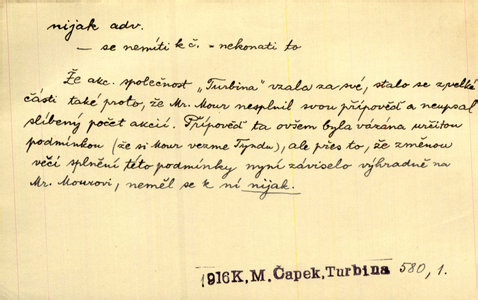 nijak adv.
— se nemíti k č. – nekonati to
Že akc. společnost „Turbina" vzala za své, stalo se z velké
části také proto, že Mr. Mour nesplnil svou přípověď a neupsal
slíbený počet akcií. Přípověď ta ovšem byla vázána určitou
podmínkou (že si Mour vezme Tyndu), ale přes to, že změnou
věcí splnění této podmínky nyní záviselo výhradně na
Mr. Mourovi, neměl se k ní nijak.
1916 K, M. Čapek, Turbina 580, 1.